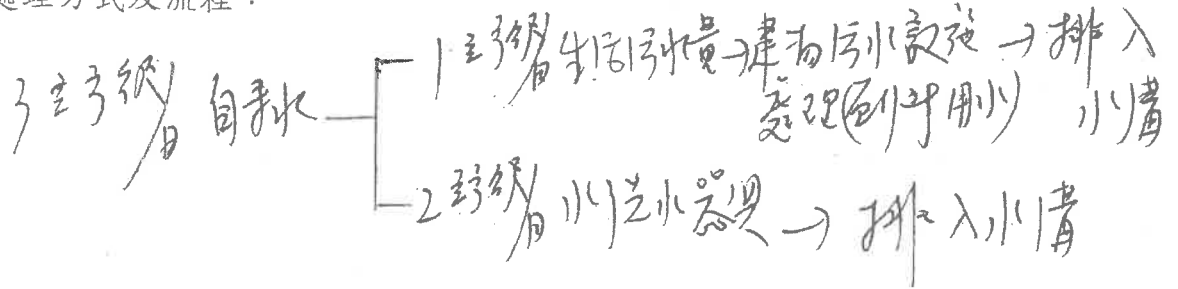 處理方式及流程：
3立方公尺/日 自來水
1立方公尺/日 生活污水量→建物污水設施→排入
處理(廁所用水) 水溝
2立方公尺/日 洗水器具→排入水溝